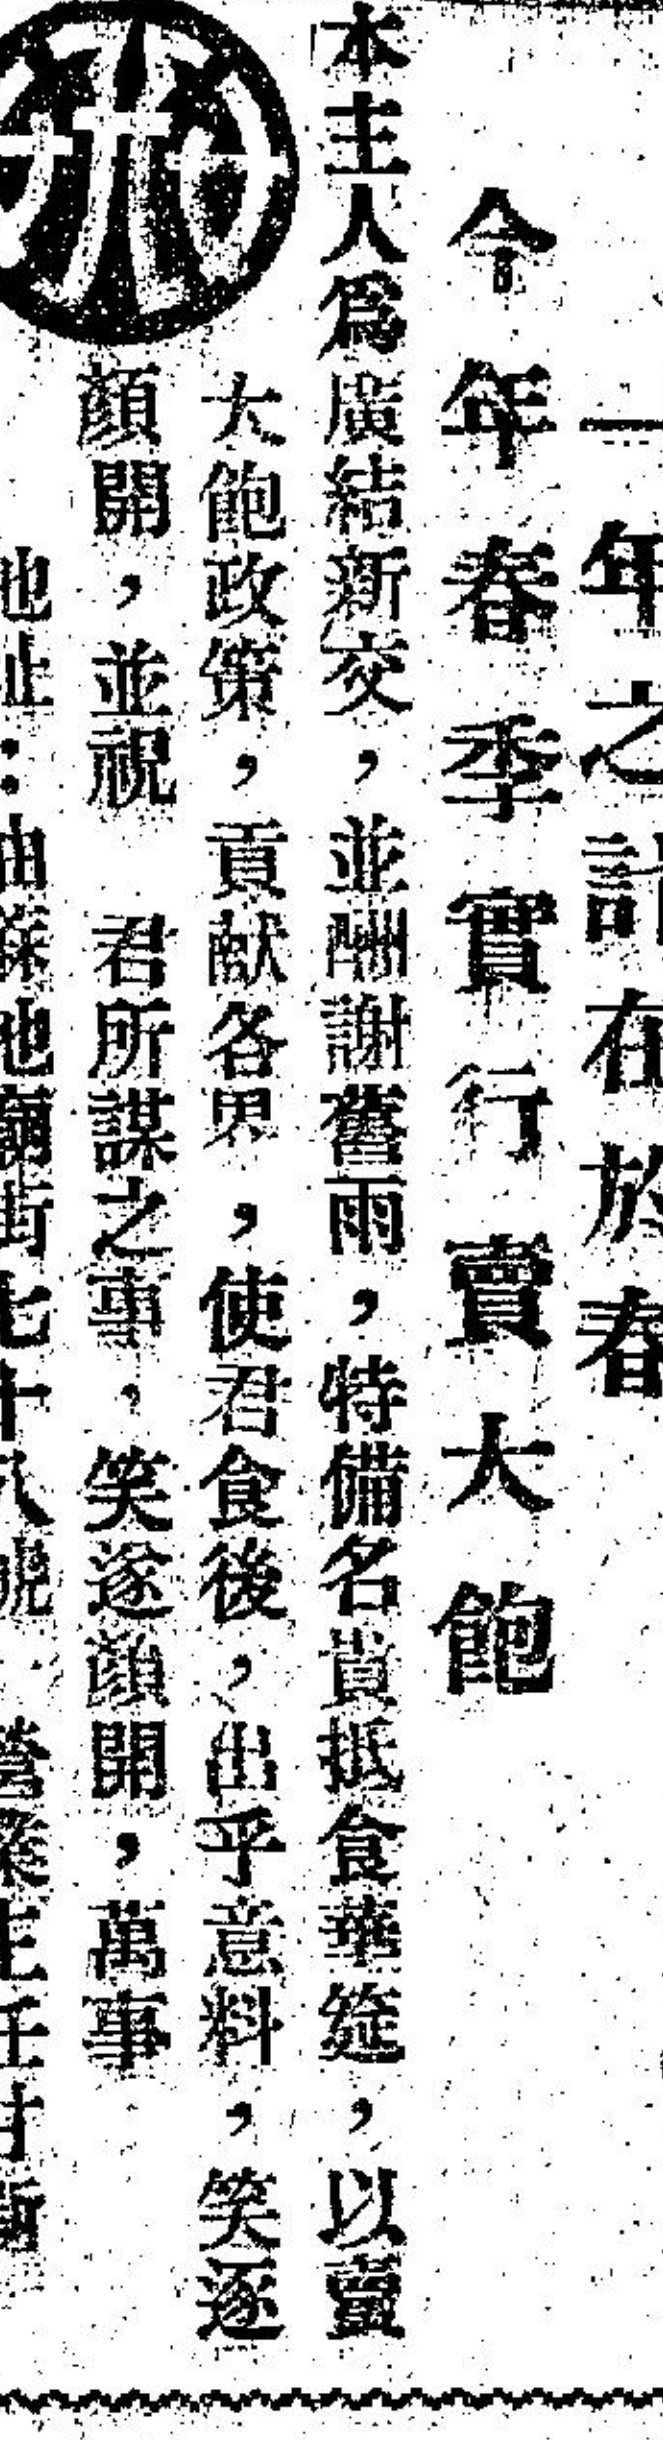 一年之計在於春
今年春季實行賣大飽
本主人爲廣結新交，並酬謝舊雨，特備名貴抵食華筵，以賣
大飽政策，貢献各界，使君食後，出乎意料，笑逐
顔開，並祝　君所謀之事，笑遂顔開，萬事
地址：油蔴地廟街七十八號　營業主任甘衡